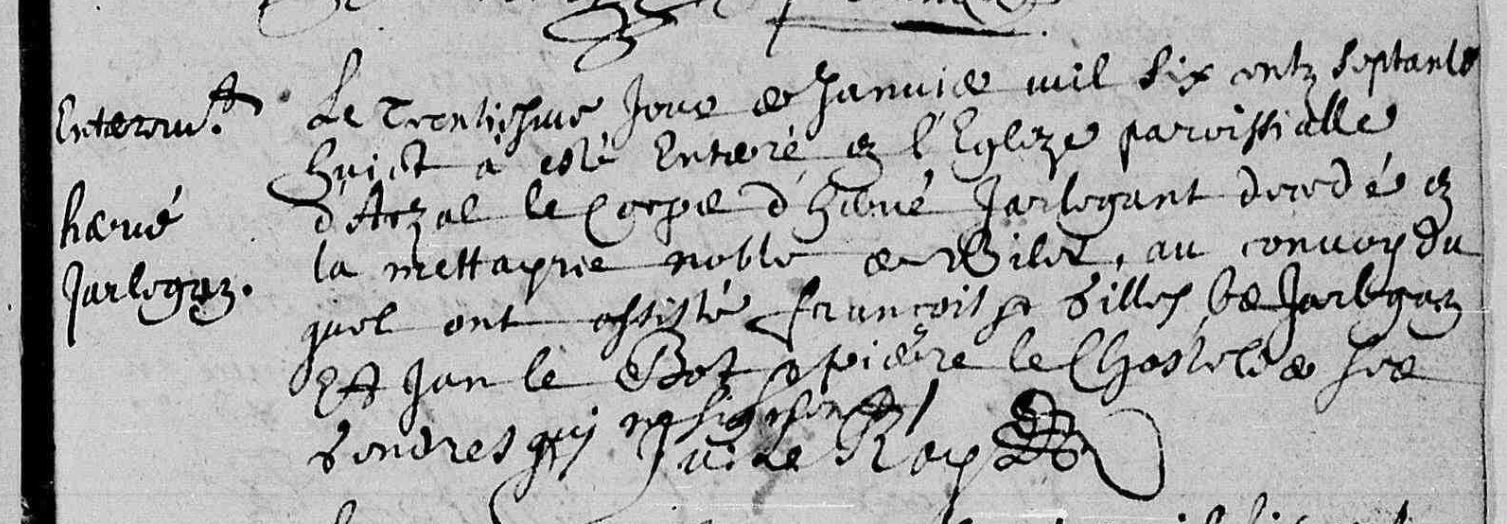 Enterrm.t
hervé
Jarlegan.
Le Trentiesme Jour de Janvier mil six centz septante
huict à esté Enterré en l'Eglize paroissialle
d'Arzal le Corps d'hervé Jarlegant decedé en
la mettayrie noble de, au convoy du
quel ont assisté François & Gilles Jarlegan
Et Jan le Bot & pierre le ses
Gendres quy ne signent
Le Roy